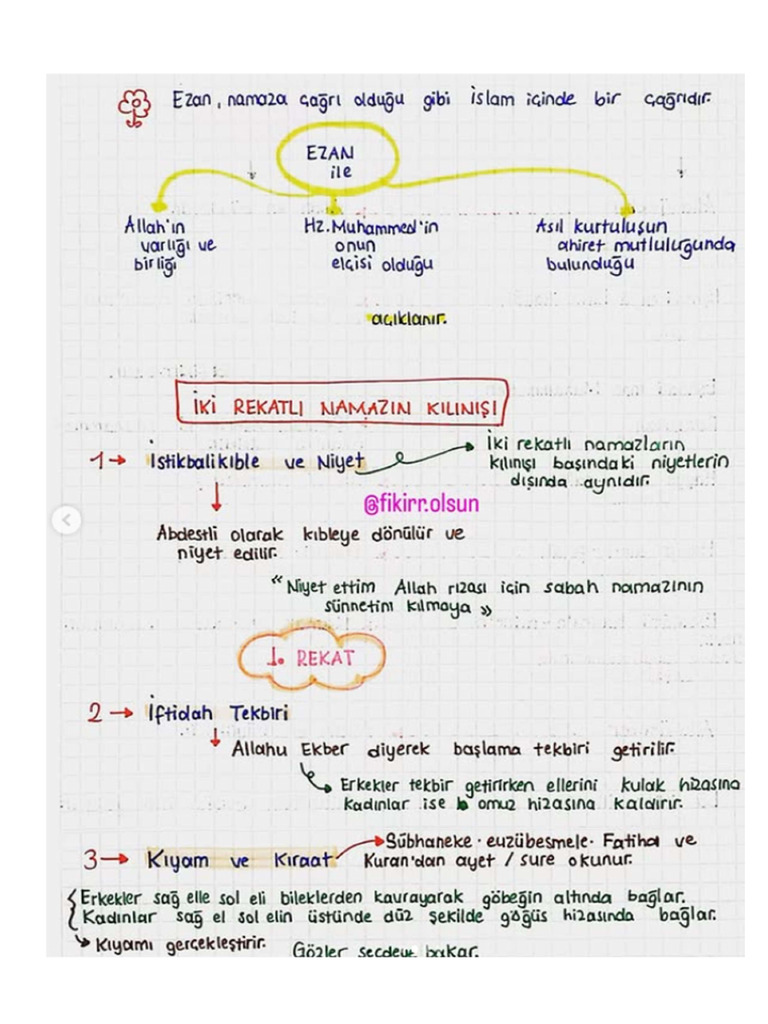 Ezan, namaza çağrı olduğu gibi islam içinde bir çağrıdır.
EZAN
ile
Allah'ın
varlığı ve
birliği
Hz. Muhammed'in
onun
elçisi olduğu
Asıl kurtuluşun
ahiret mutluluğunda
bulunduğu
açıklanır.
İKİ REKATLI NAMAZIN KILINIŞI
1→ İstikbalikıble ve Niyet
İki rekatlı namazların
kılınışı başındaki niyetlerin
dışında aynıdır.
@fikirr.olsun
Abdestli olarak kıbleye dönülür ve
niyet edilir.
"Niyet ettim Allah rızası için sabah namazının
sünnetini kılmaya »
1. REKAT
2→ İftidah Tekbiri
Allahu Ekber diyerek başlama tekbiri getirilir.
Erkekler tekbir getirirken ellerini kulak hizasına
Kadınlar ise omuz hizasına kaldırır.
3→ Kıyam ve Kıraat
Sübhaneke · euzübesmele · Fatiha ve
Kuran'dan ayet / sure okunur.
Erkekler sağ elle sol eli bileklerden kavrayarak göbeğin altında bağlar.
Kadınlar sağ el sol elin üstünde düz şekilde göğüs hizasında bağlar.
Kıyamı gerçekleştirir. Gözler secdeye bakar.